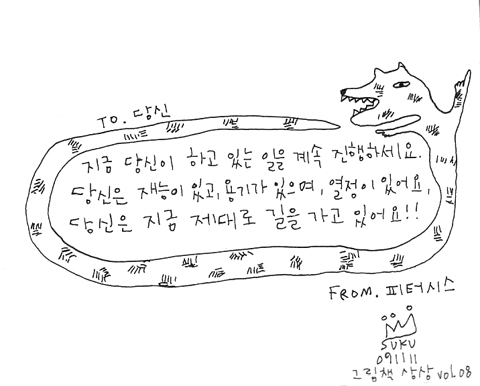 TO. 당신
지금 당신이 하고 있는 일을 계속 진행하세요.
당신은 재능이 있고, 용기가 있으며, 열정이 있어요,
당신은 지금 제대로 길을 가고 있어요!!
FROM. 피터시스
SUKU
091111
그림책 상상 vol.08